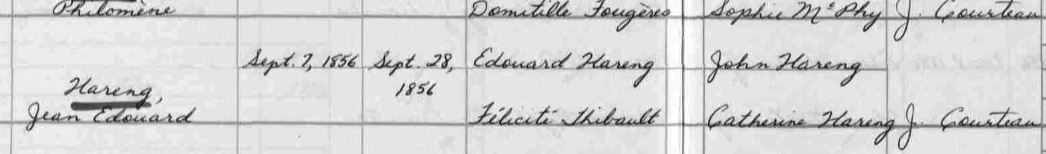 Philomène Domitille Fougères Sophie McPhy J. Courteau
Sept. 7, 1856 Sept. 28, Edouard Hareng John Hareng
Hareng, 1856
Jean Edouard Félicité Thibault Catherine Hareng J. Courteau